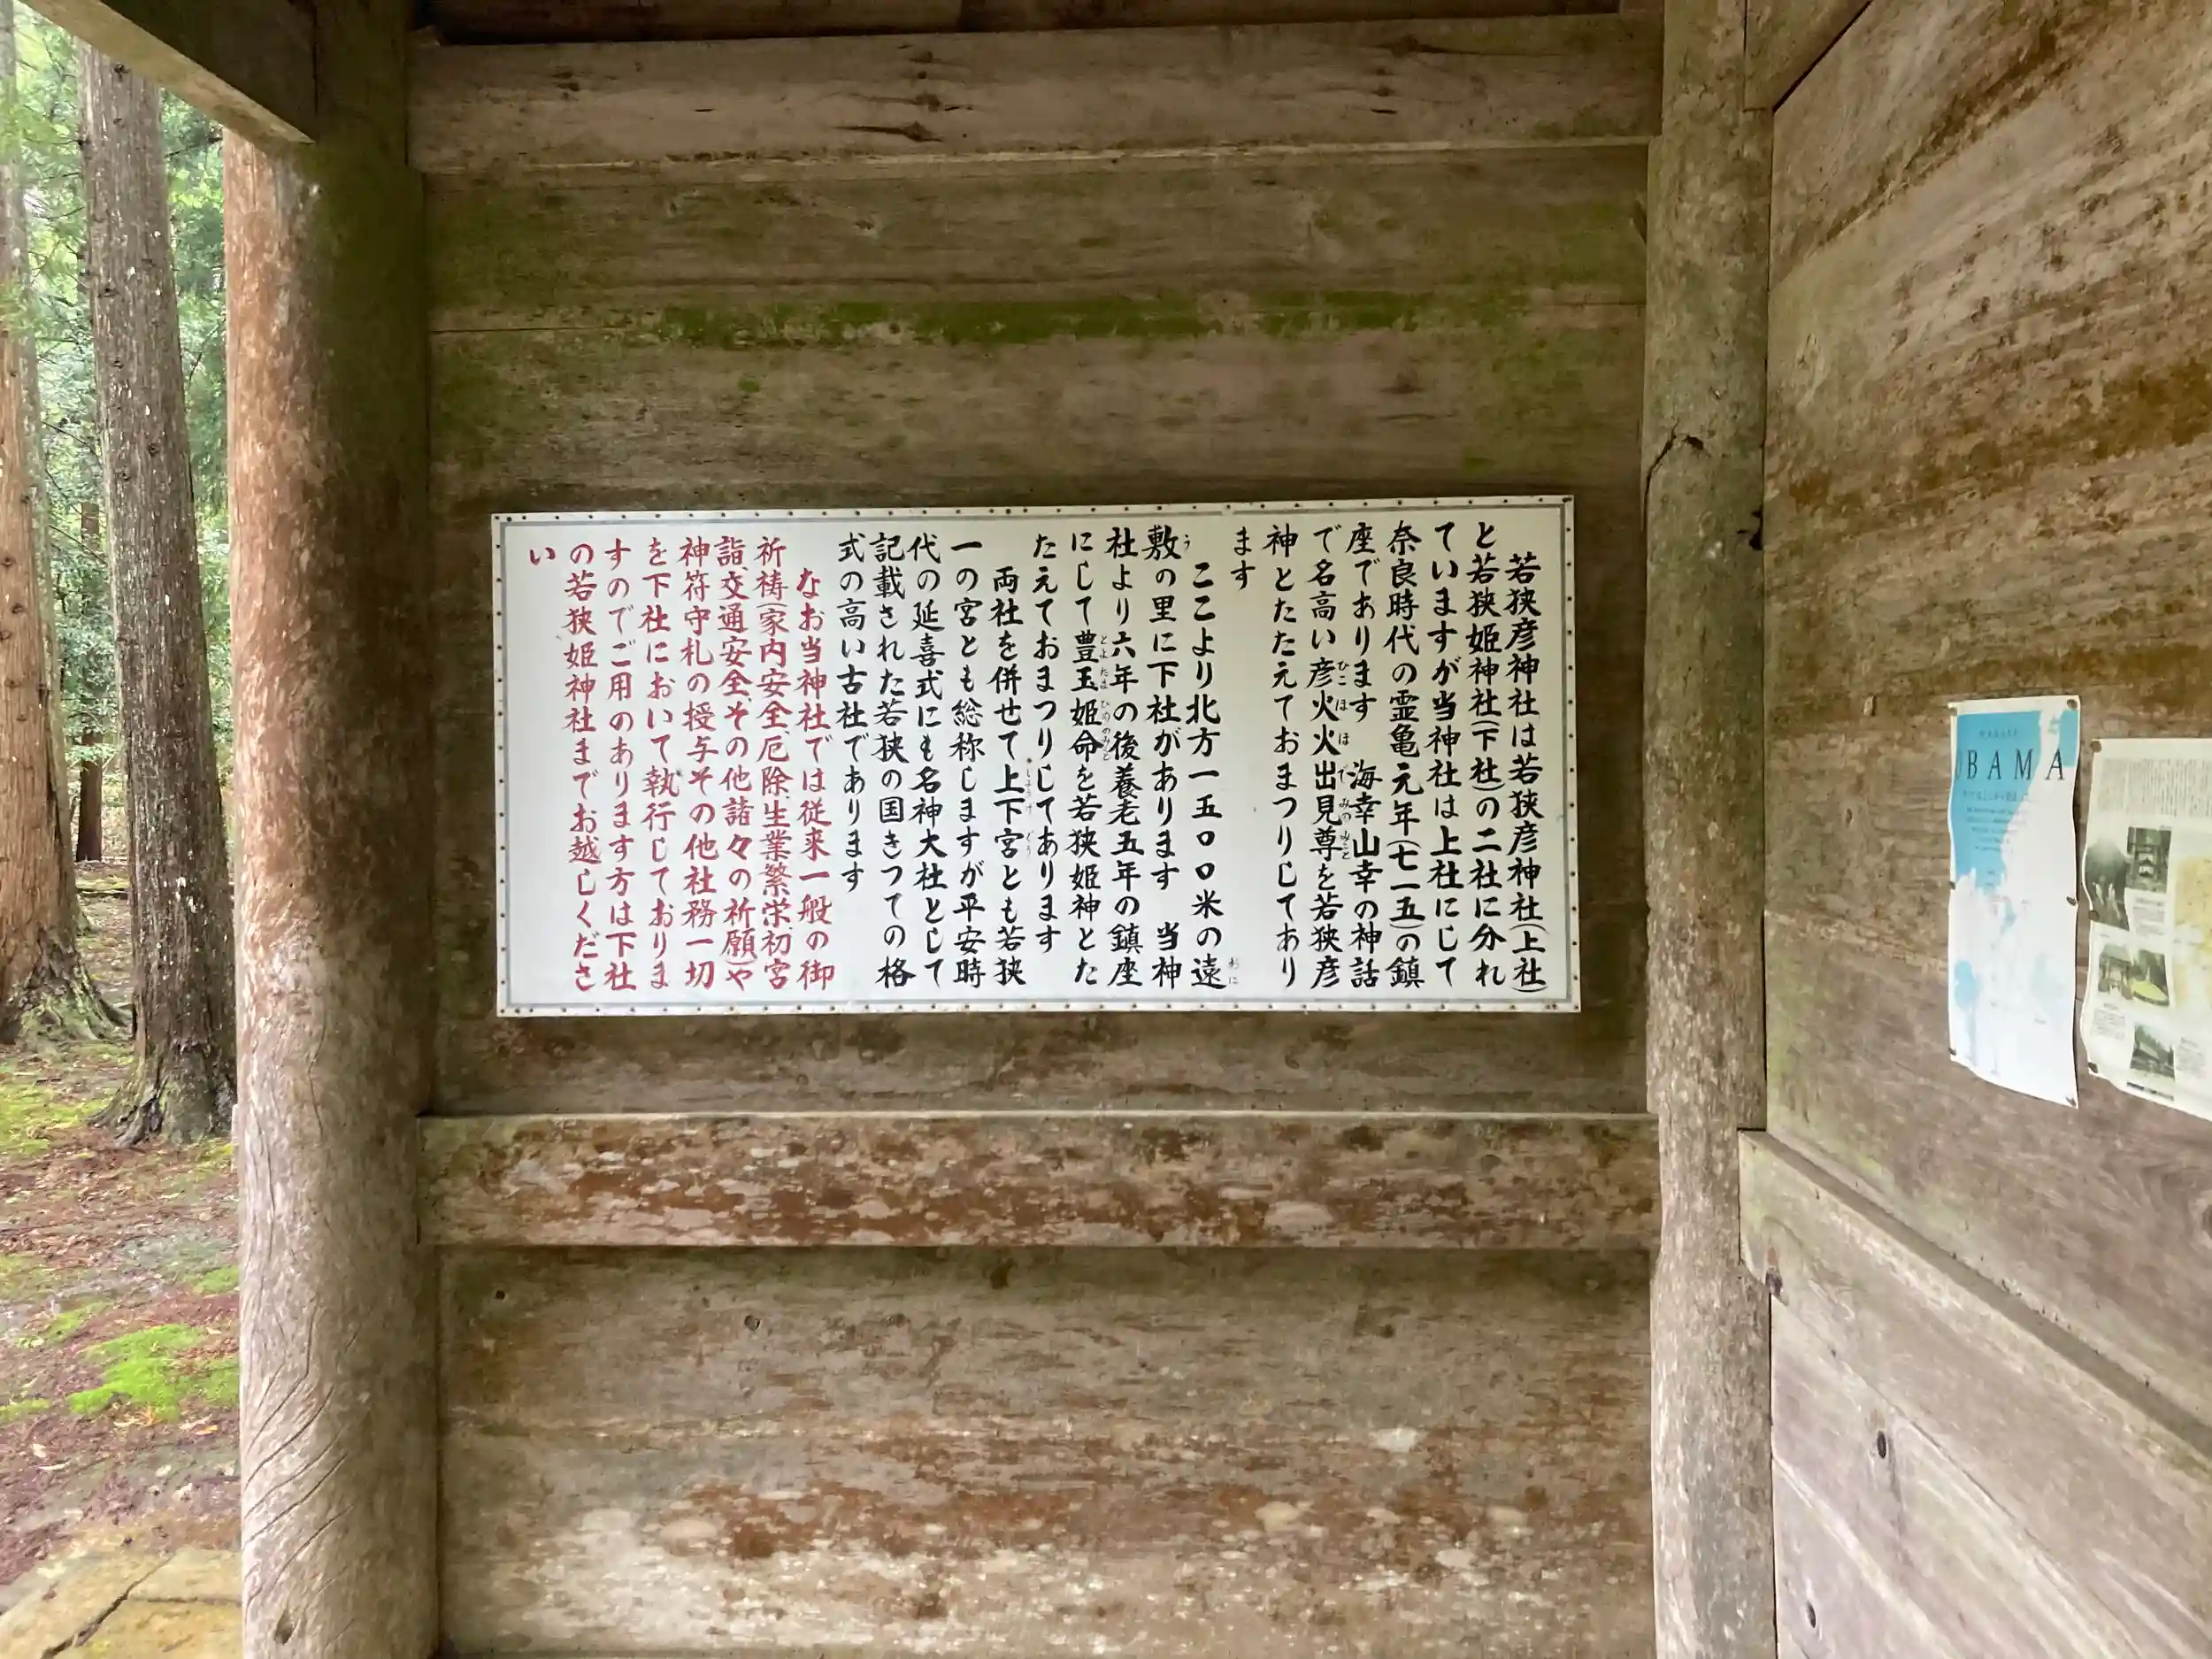 若狭彦神社は若狭彦神社(上社)
と若狭姫神社(下社)の二社に分れ
ていますが当神社は上社にして
奈良時代の霊亀元年(七一五)の鎮
座であります 海幸山幸の神話
で名高い彦火火出見尊を若狭彦
神とたたえておまつりしてあり
ます
ここより北方一五〇〇米の遠
敷の里に下社があります 当神
社より六年の後養老五年の鎮座
にして豊玉姫命を若狭姫神とた
たえておまつりしてあります
両社を併せて上下宮とも若狭
一の宮とも総称しますが平安時
代の延喜式にも名神大社として
記載された若狭の国きつての格
式の高い古社であります
なお当神社では従来一般の御
祈祷(家内安全、厄除、生業繁栄、初宮
詣、交通安全、その他諸々の祈願)や
神符守札の授与その他社務一切
を下社において執行しておりま
すのでご用のあります方は下社
の若狭姫神社までお越しくださ
い
OBAMA